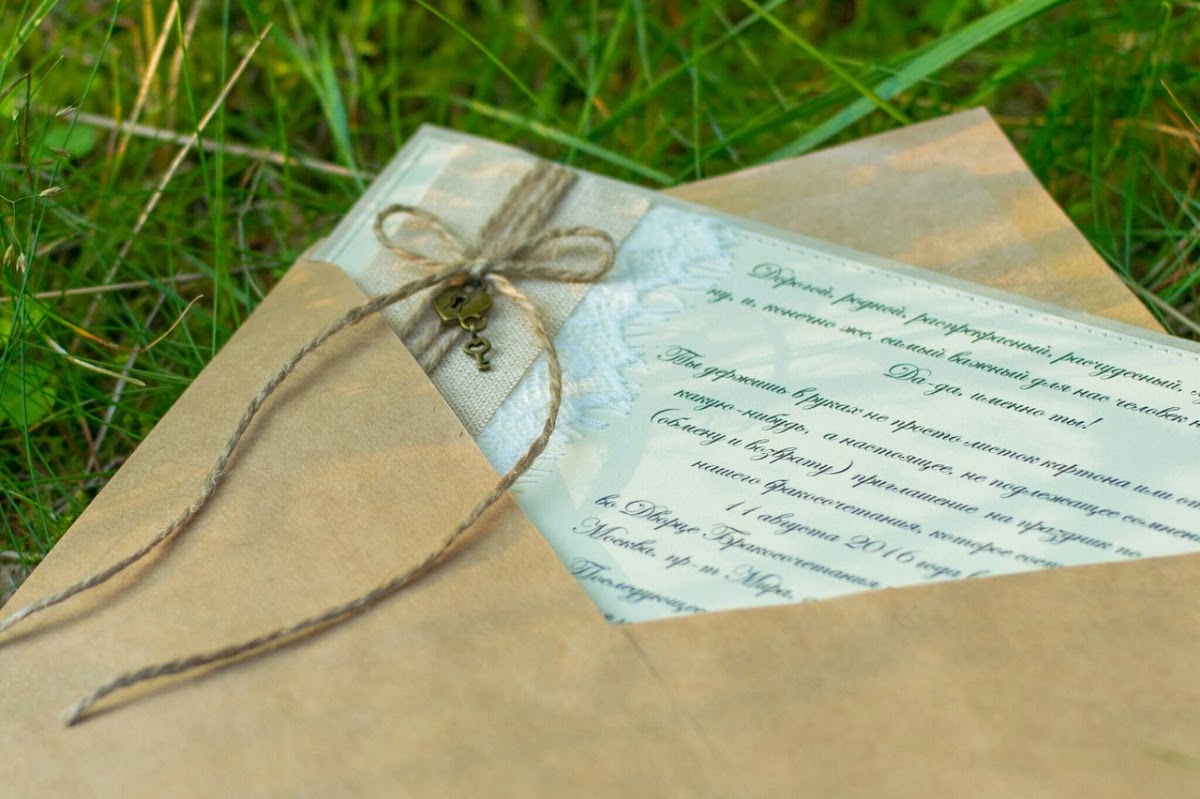 Дорогой, родной, распрекрасный, расчудесный,
ну, и, конечно же, самый важный для нас человек
Да-да, именно ты!
Ты держишь в руках не просто листок картона или
какую-нибудь, а настоящее, не подлежащее
(обмену и возврату) приглашение на праздник по
нашего бракосочетания, которое
11 августа 2016 года
во Дворце Бракосочетания
Москва, пр-т Мира,
Последующее